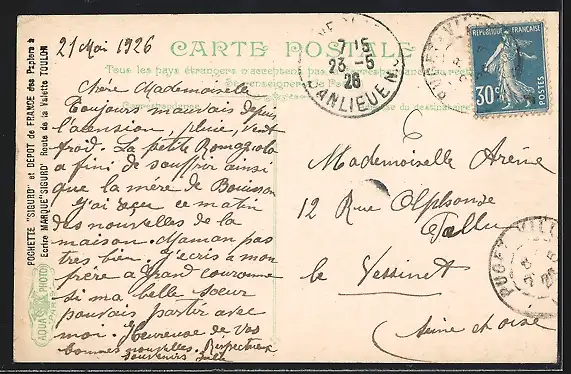 POCHETTE "SIGURD" et DEPOT de FRANCE des Papiers à
Ecrire MARQUE "SIGURD" Route de la Valette TOULON
AQUA PHOTO
21 Mai 1926
CARTE POSTALE
Tous les pays étrangers n'acceptent pas
Correspondance
du destinataire
Chère Mademoiselle
Toujours mauvais depuis
l'ascension, pluie, vent
froid. La petite
a fini de souffrir ainsi
que la mère de Bouisson
J'ai reçu ce matin
des nouvelles de la
maison. Maman pas
très bien. J'écris à mon
frère à Grand couronne
si ma belle soeur
pouvait partir avec
moi. Heureuse de vos
bonnes nouvelles. Respectueux
souvenirs
7 15
23 - 5
26
BANLIEUE N.
REPUBLIQUE FRANÇAISE
30c
POSTES
Mademoiselle Arène
12 Rue Alphonse
le Vésinet
Seine et oise
PUGET-VILLE